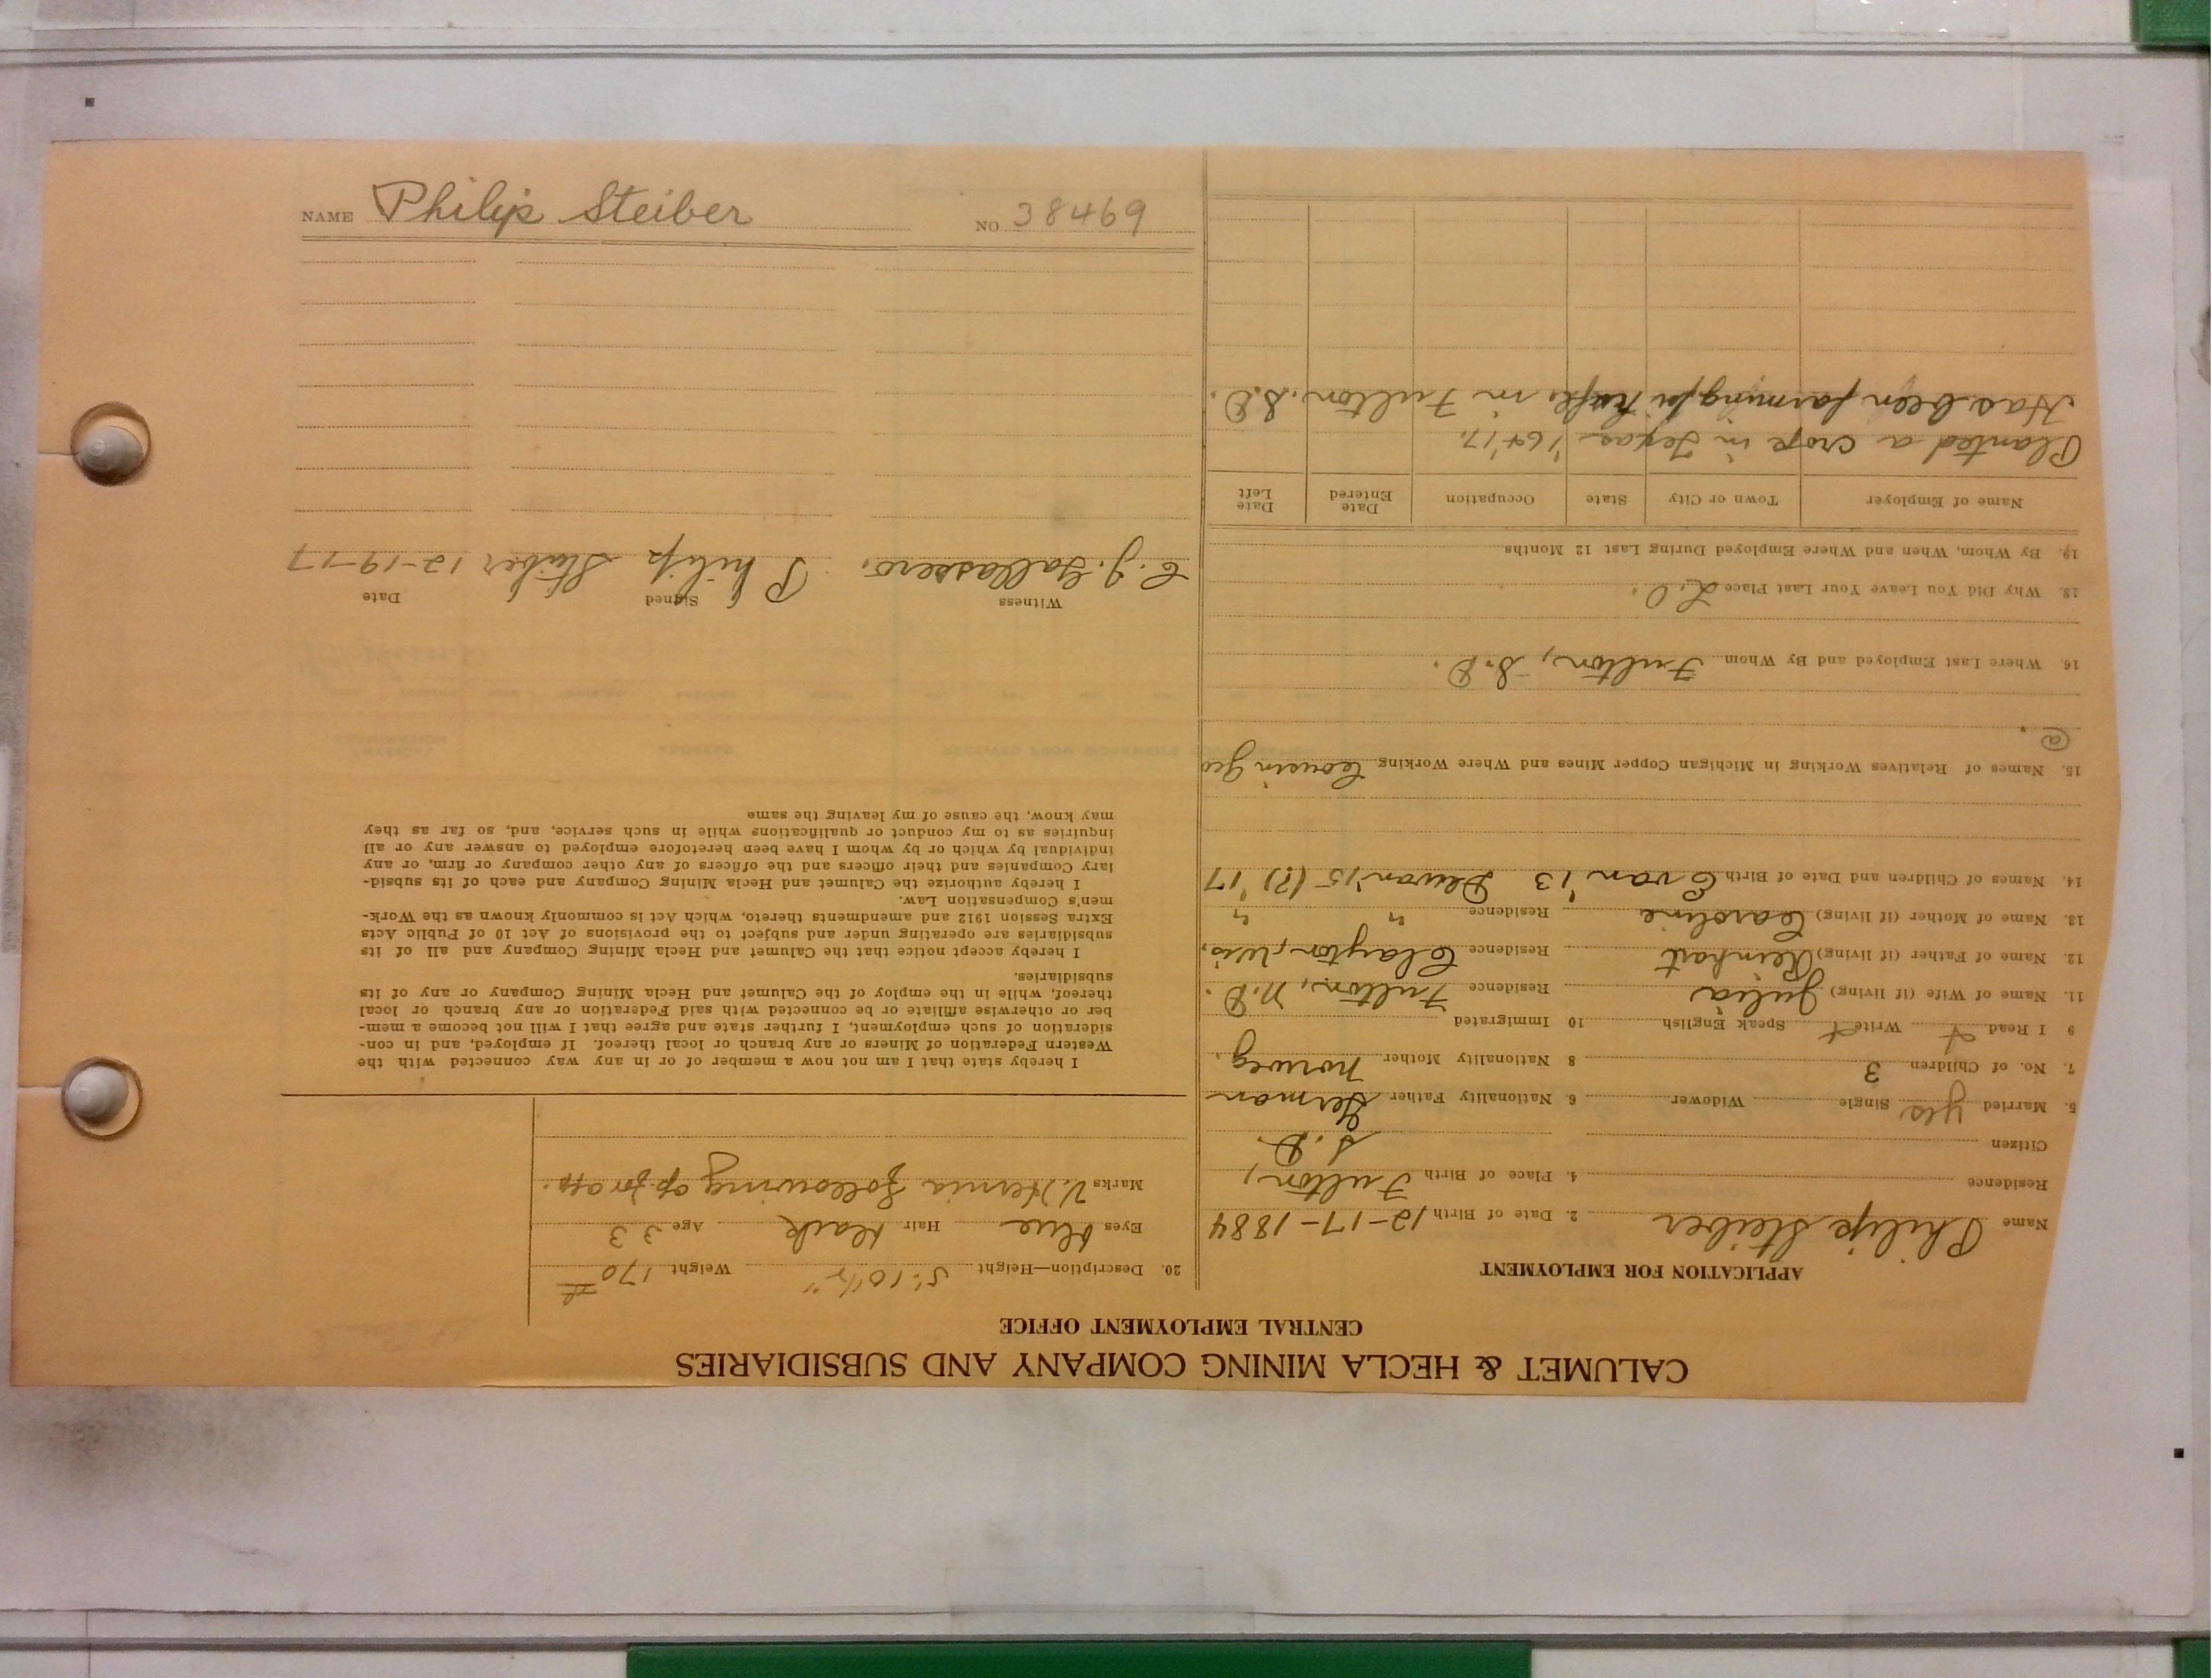 CALUMET & HECLA MINING COMPANY AND SUBSIDIARIES
CENTRAL EMPLOYMENT OFFICE
APPLICATION FOR EMPLOYMENT
Name Philip Steiber 2. Date of Birth 12-17-1884
Residence 4. Place of Birth Fulton,
Citizen S.D.
5. Married yes Single Widower 6. Nationality Father German
7. No. of Children 3 8 Nationality Mother Norweg.
9 I Read Write Speak English 10 Immigrated
11. Name of Wife (if living) Julia Residence Fulton, N.D.
12. Name of Father (if living) Reinhart Residence Clayton, Wis.
13. Name of Mother (if living) Caroline Residence " "
14. Names of Children and Date of Birth Evan '13 '15 (?) '17
15. Names of Relatives Working in Michigan Copper Mines and Where Working Cousin Geo
@
16. Where Last Employed and By Whom Fulton, S.D.
18. Why Did You Leave Your Last Place L.O.
19. By Whom, When and Where Employed During Last 12 Months
Name of Employer Town or City State Occupation Date Entered Date Left
Planted a crop in Texas '16 + '17.
Has been farming in Fulton, S.D.
20. Description—Height 5' 10 1/2" Weight 170 #
Eyes blue Hair black Age 33
Marks V. Hernia following op for app.
I hereby state that I am not now a member of or in any way connected with the
Western Federation of Miners or any branch or local thereof. If employed, and in con-
sideration of such employment, I further state and agree that I will not become a mem-
ber or otherwise affiliate or be connected with said Federation or any branch or local
thereof, while in the employ of the Calumet and Hecla Mining Company or any of its
subsidiaries.
I hereby accept notice that the Calumet and Hecla Mining Company and all of its
subsidiaries are operating under and subject to the provisions of Act 10 of Public Acts
Extra Session 1912 and amendments thereto, which Act is commonly known as the Work-
men's Compensation Law.
I hereby authorize the Calumet and Hecla Mining Company and each of its subsid-
iary Companies and their officers and the officers of any other company or firm, or any
individual by which or by whom I have been heretofore employed to answer any or all
inquiries as to my conduct or qualifications while in such service, and, so far as they
may know, the cause of my leaving the same
Witness Signed Date
C. J. Gallassero. Philip Steiber 12-19-17
NAME Philip Steiber NO. 38469